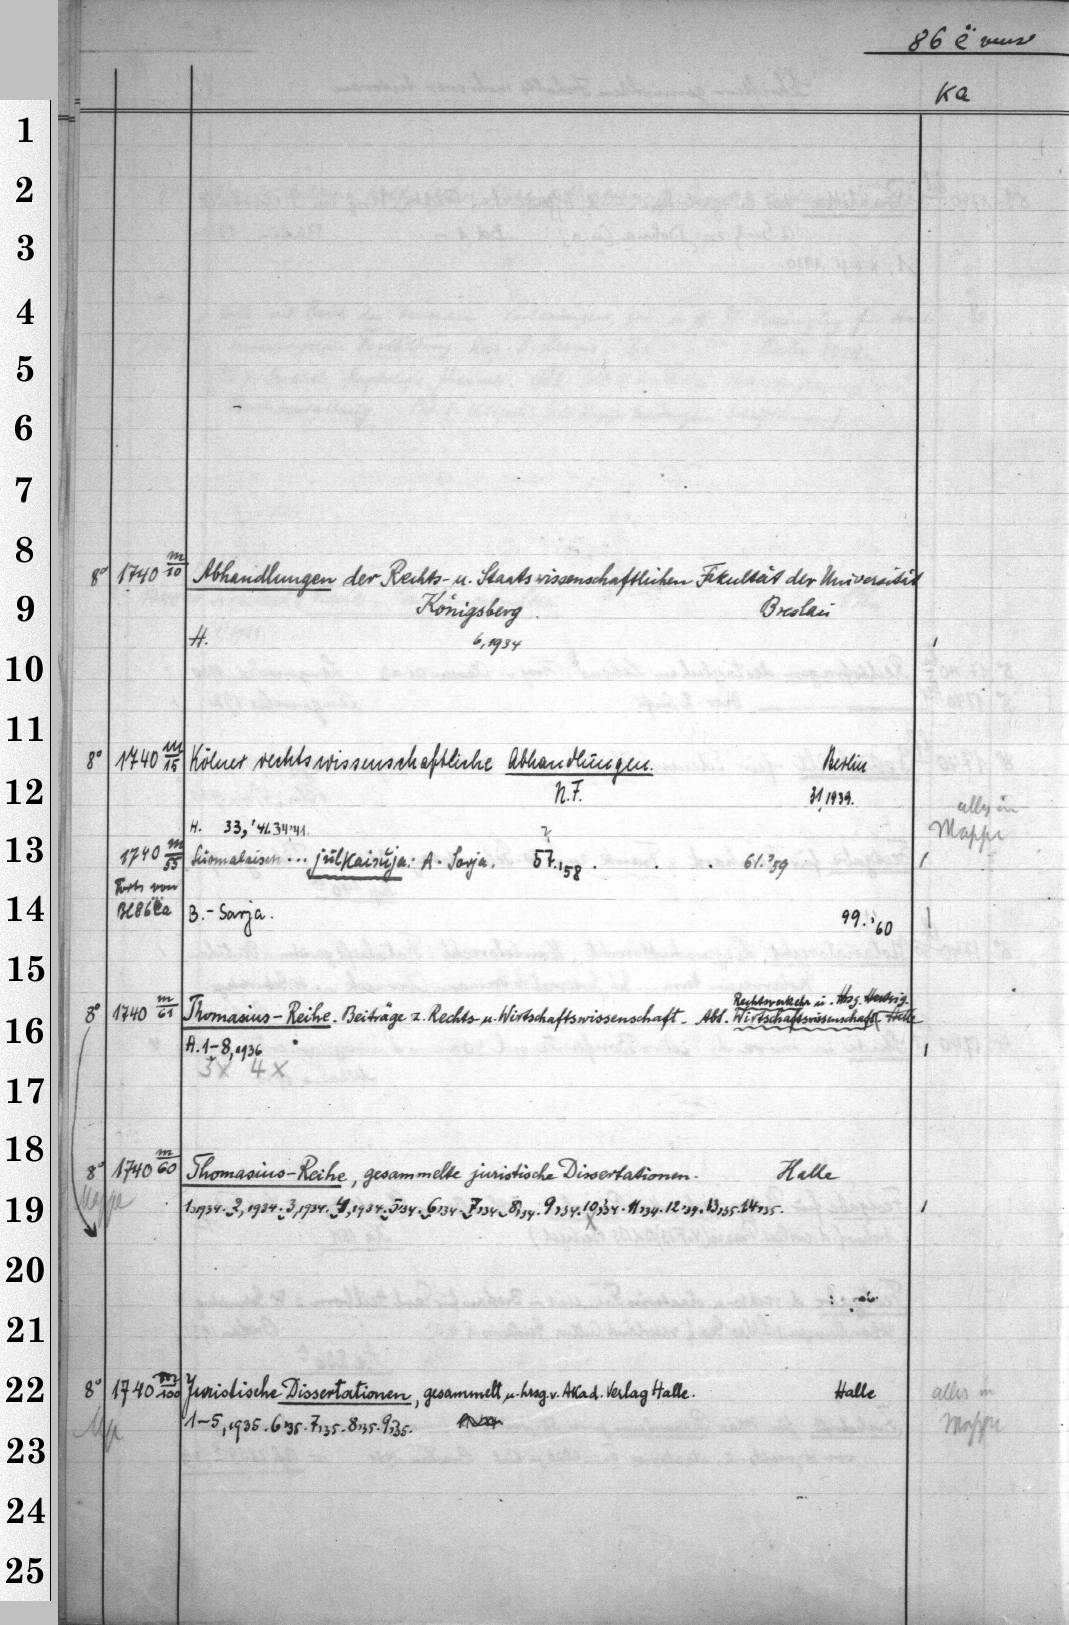 86 ë
Ka
1
2
3
4
5
6
7
8
8° 1740 m/10 Abhandlungen der Rechts- u. Staatswissenschaftlichen Fakultät der Universität
9 Königsberg. Breslau
H. 6,1934
10
11
8° 1740 m/15 Kölner rechtswissenschaftliche Abhandlungen. Berlin
12 N.F. 31,1939.
alles in
H. 33,'41. 34'41.
Mappe
13 1740 m/55 Suomalaisen ... julkaisuja: A. Sarja. 57.'58 . . . 61.'59
Forts von
14 Bl 86ëa B.- Sarja. 99.'60
15
Rechtsverkehr u. Hrsg. Hedwig
8° 1740 m/61 Thomasius-Reihe. Beiträge z. Rechts- u. Wirtschaftswissenschaft. Abt. Wirtschaftswissenschaft Halle
16 H. 1-8,1936
3x 4x
17
18
8° 1740 m/60 Thomasius-Reihe, gesammelte juristische Dissertationen. Halle
Mappe
19 1,1934. 2,1934. 3,1934. 4,1934. 5,34. 6,34. 7,34. 8,34. 9,34. 10,34. 11,34. 12,34. 13,35. 14,35.
20
21
22 8° 1740 m/100 Juristische Dissertationen, gesammelt u. hrsg. v. Akad. Verlag Halle. Halle alles in
1-5,1935. 6,35. 7,35. 8,35. 9,35. Mappe
23
24
25